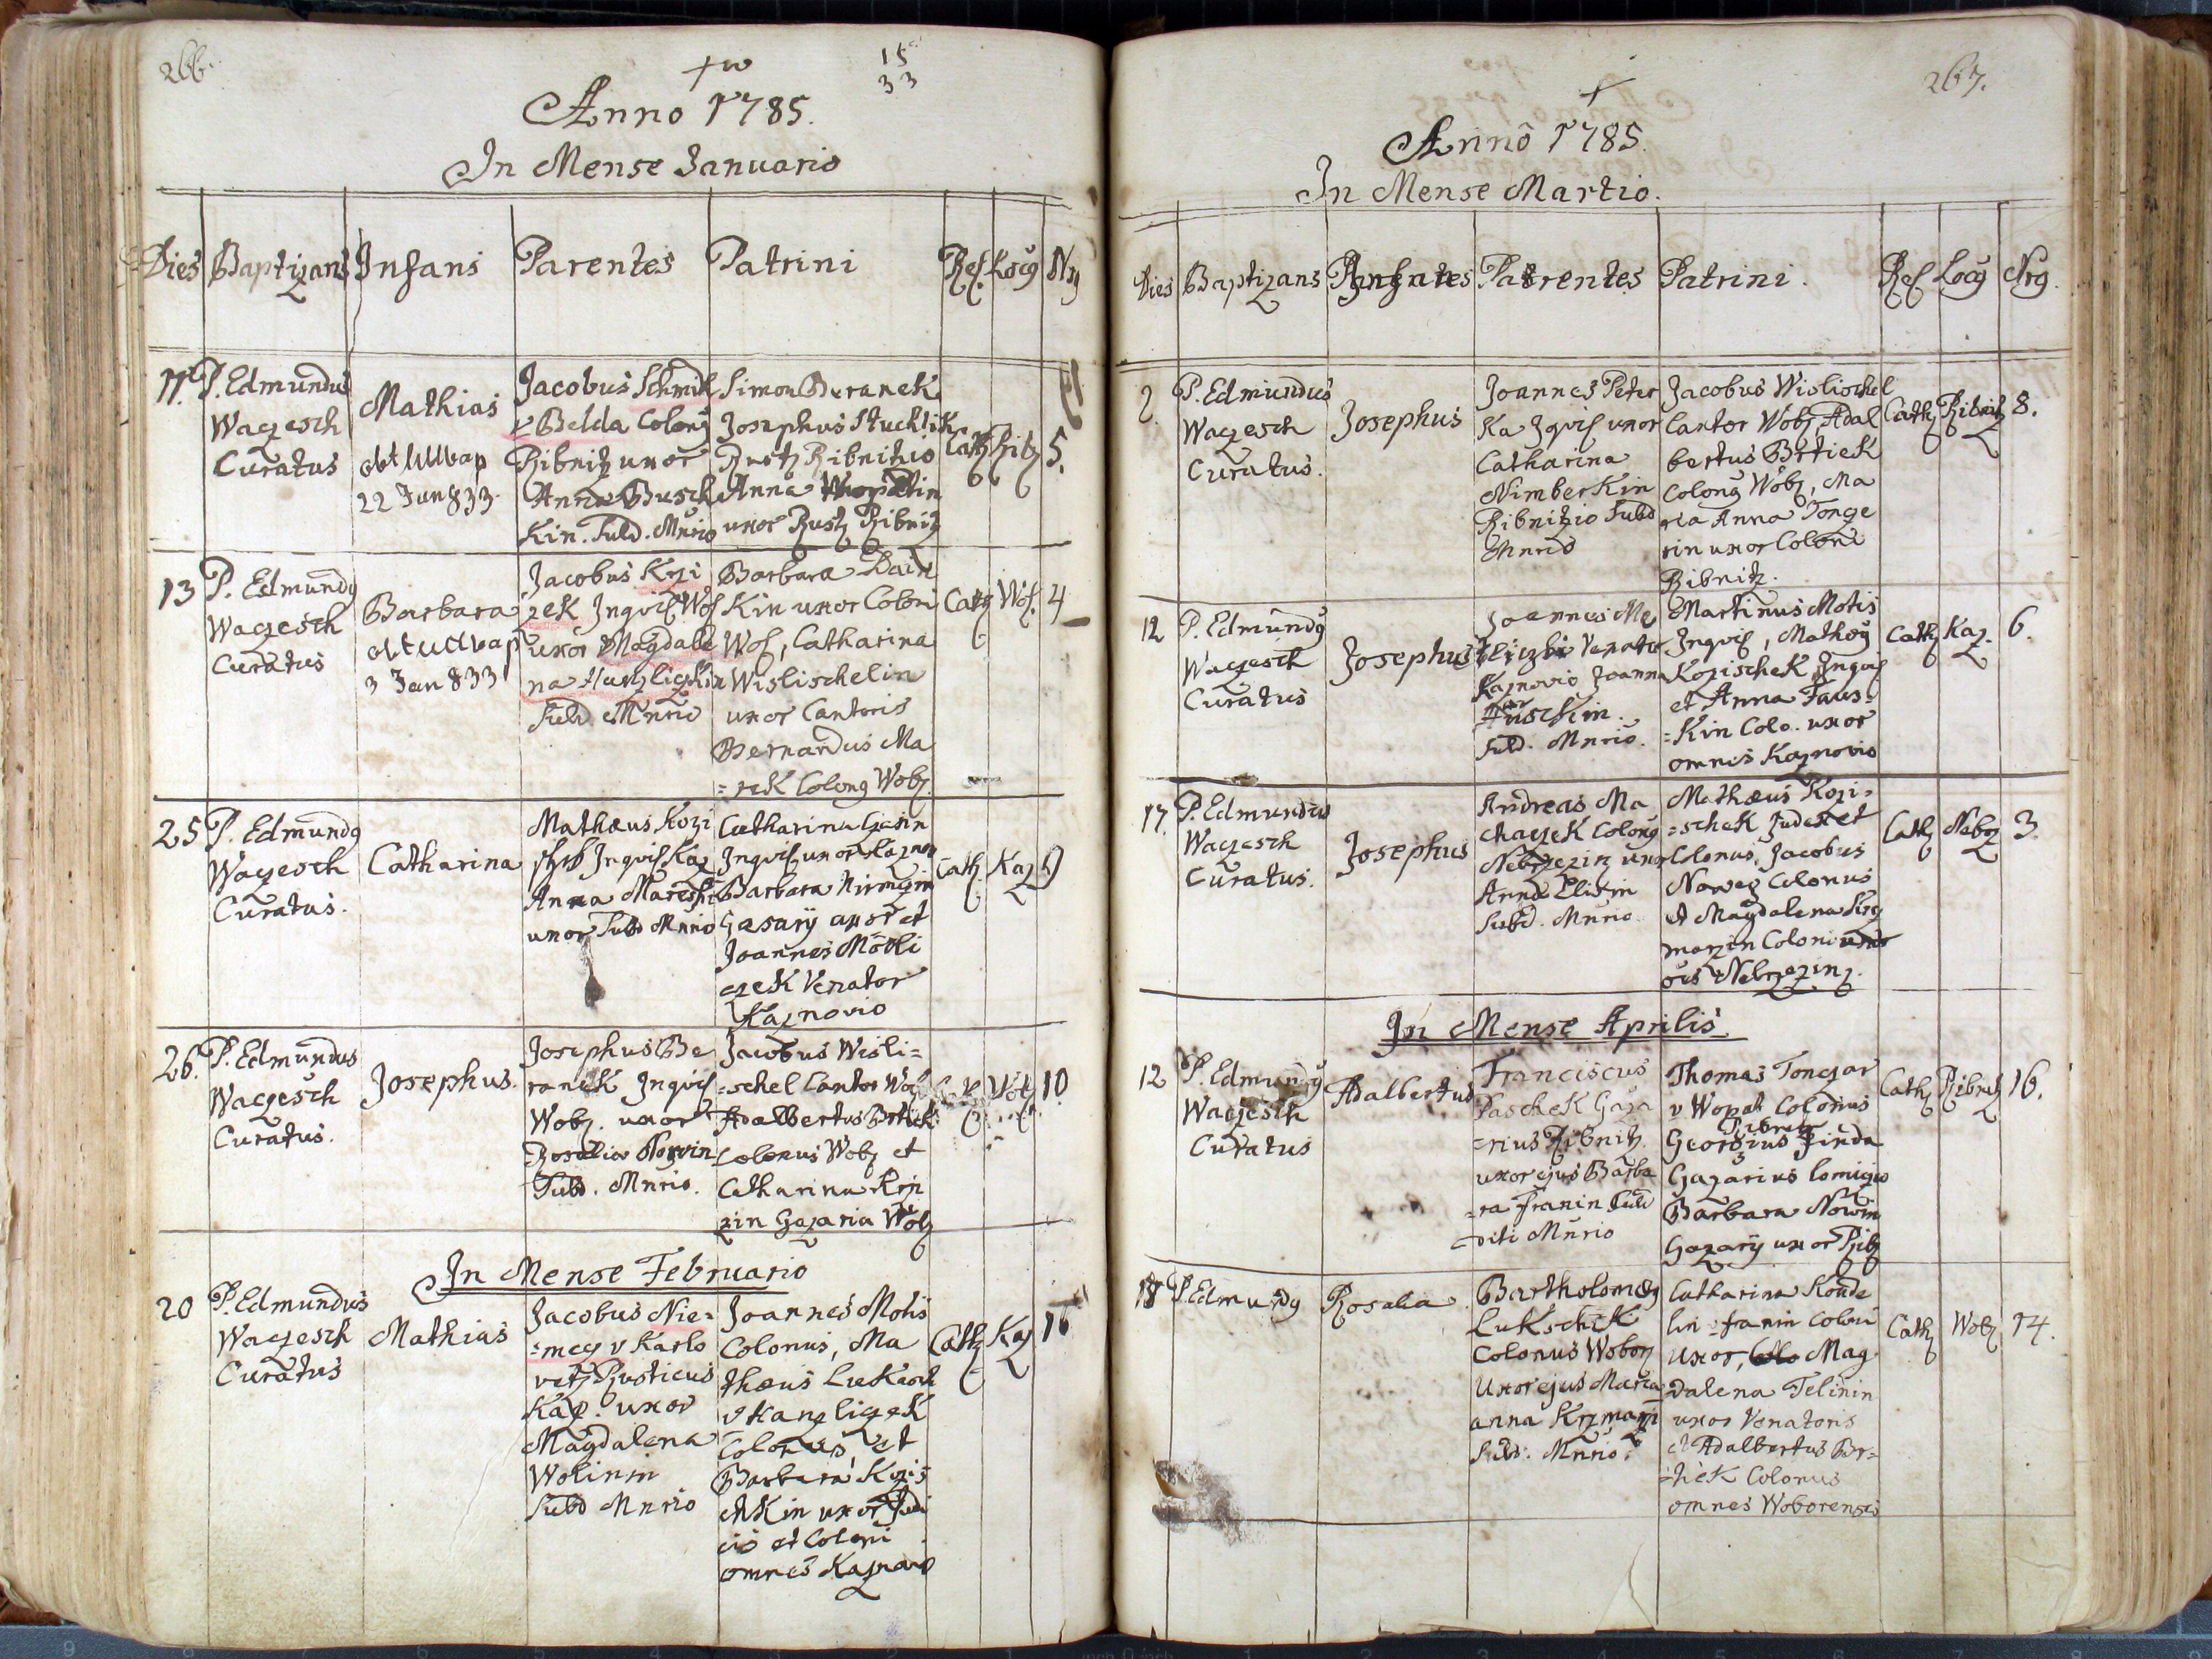 266.
15
33
Anno 1785.
In Mense Januario
Dies Baptizans Infans Parentes Patrini Rel. Locg Nrg
11. P. Edmundus
Waczesch
Curatus
Mathias
22 Jun 833.
Jacobus Schmidl
v Belda Colong
Ribnitz uxor
Anna Busch
Kin. Subd. Mnrio
Simon Beranek
Josephus Stuchlik
Rustz Ribnitzio
Anna
uxor Rustz Ribnitz
Cath Ribz 5.
13 P. Edmundg
Waczesch
Curatus
Barbara
3 Jan 833
Jacobus Krzi
zek Inqvil Wol
uxor Magdale
na Hanzliczkin
Subd. Mnrio
Barbara Dain
Kin uxor Coloni
Wol, Catharina
Wislischelin
uxor Cantoris
Bernardus Ma
=rek Colong Wobz.
Cath Wol. 4
25 P. Edmundg
Waczesch
Curatus.
Catharina
Mathæus Kozi
Inqvil Kaz
Anna
uxor Subd Mnrio
Catharina
Inqvil uxor Kaznov
Barbara
Gazarÿ uxor et
Joannes Motli
czek Venator
Kaznovio
Cath Kaz 9
26. P. Edmundus
Waczesch
Curatus.
Josephus.
Josephus Be
ranek Inqvil
Wobz. uxor
Rosalia
Subd. Mnrio.
Jacobus Wisli=
=schel Cantor Wobz
Adalbertus Brtiek
Colonus Wobz et
Catharina Krzi
zin Gazaria Wobz
Wobz 10
In Mense Februario
20 P. Edmundus
Waczesch
Curatus
Mathias
Jacobus Nie=
=mcz v Karlo
vetz Rusticus
Kaz. uxor
Magdalena
Wolinin
Subd Mnrio
Joannes Motis
Colonus, Ma
thæus Lukasch
v Kanzliczek
Colonus et
Barbara Kozis
chkin uxor Judi
cis et Coloni
omnes Kaznov
Cath Kaz 16
267.
Anno 1785.
In Mense Martio.
Dies Baptizans Infantes Parentes Patrini. Rel Locg Nrg.
2 P. Edmundus
Waczesch
Curatus.
Josephus
Joannes Peter
Ka Iqvil uxor
Catharina
Nimberkin
Ribnitzio Subd
Mnrio
Jacobus Wislischel
Cantor Wobz Adal
bertus Brtiek
Colong Wobz, Ma
ria Anna Toncze
rin uxor Coloni
Ribnitz.
Cath Ribnitz 8.
12 P. Edmundg
Waczesch
Curatus
Josephus
Joannes Me
Venator
Kaznovio Joanna
Subd. Mnrio.
Martinus Motis
Inqvil, Mathæg
Kozischek Inqvil
et Anna Faus=
=Kin Colo. uxor
omnes Kaznovio
Cath Kaz. 6.
17. P. Edmundus
Waczesch
Curatus.
Josephus
Andreas Ma
chaczek Colong
Nebrzezinz uxor
Anna
Subd. Mnrio
Mathæus Kozi=
=schek Judex et
Colonus, Jacobus
Colonus
et Magdalena Krz
marzin Coloni
Nebrzezinz.
Cath Nebrz 3.
In Mense Aprilis
12 P. Edmundg
Waczesch
Curatus
Adalbertus
Franciscus
Paschek Gaza
=rius Ribnitz
uxor ejus Barba
=ra Franin Sub
=diti Mnrio
Thomas Tonczar
v Wopat Colonus
Ribnitz
Georgius Jinda
Gazarius
Barbara Nowin
Gazarÿ uxor Ribz
Cath Ribnitz 16.
18 P. Edmundg
Rosalia
Bartholomæg
Lukschik
Colonus Woborz
Uxor ejus Maria
anna Krzmarzi
Subd. Mnrio.
Catharina Koude
lin Franin Coloni
uxor, Mag
dalena Telinin
uxor Venatoris
et Adalbertus Br=
=tiek Colonus
omnes Woborenses
Cath Wobz 14.